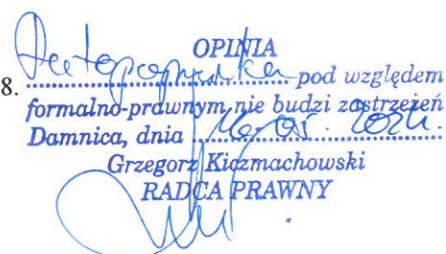 OPINIA
8. Autopoprawka pod względem
formalno-prawnym nie budzi zastrzeżeń
Damnica, dnia
Grzegorz Kiczmachowski
RADCA PRAWNY